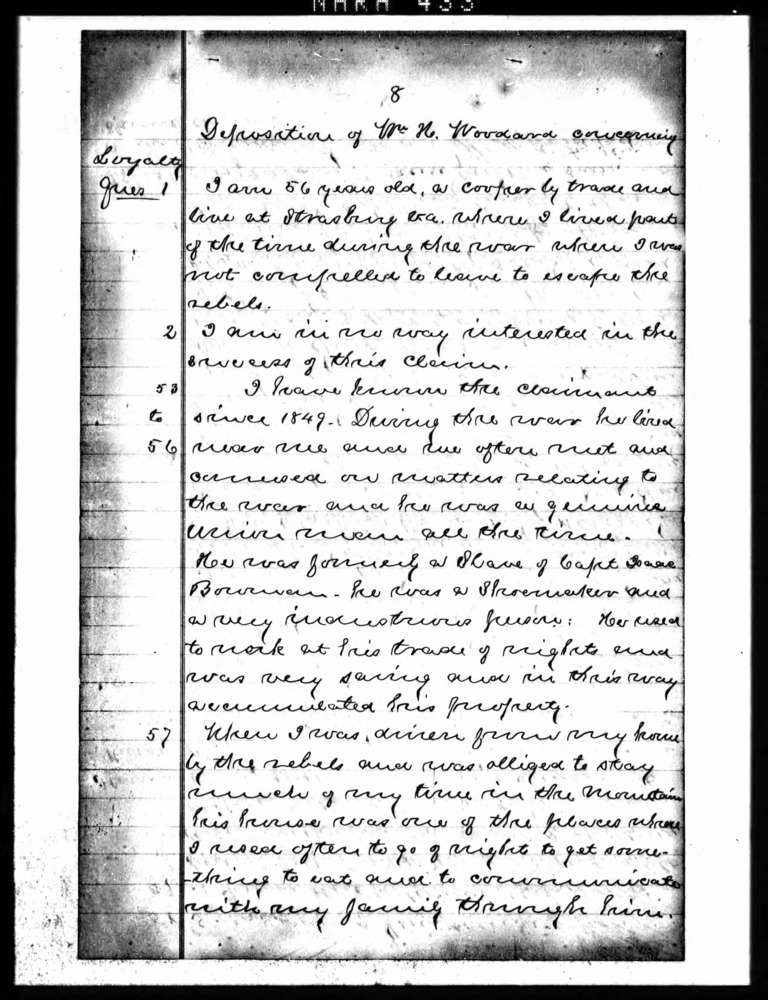 NARA 433
8
Deposition of Wm H. Woodard concerning
Loyalty
Ques 1 I am 56 years old, a cooper by trade and
live at Strasburg Va. where I lived part
of the time during the war when I was
not compelled to leave to escape the
rebels.
2 I am in no way interested in the
success of this claim.
53 I have known the claimant
to since 1849. During the war he lived
56 near me and we often met and
conversed on matters relating to
the war and he was a genuine
Union man all the time.
He was formerly a Slave of Capt Isaac
Bowman. he was a Shoemaker and
a very industrious person: He used
to work at his trade of nights and
was very saving and in this way
accumulated his property.
57 When I was driven from my home
by the rebels and was obliged to stay
much of my time in the Mountain
his house was one of the places where
I used often to go of night to get some-
thing to eat and to communicate
with my family through him.